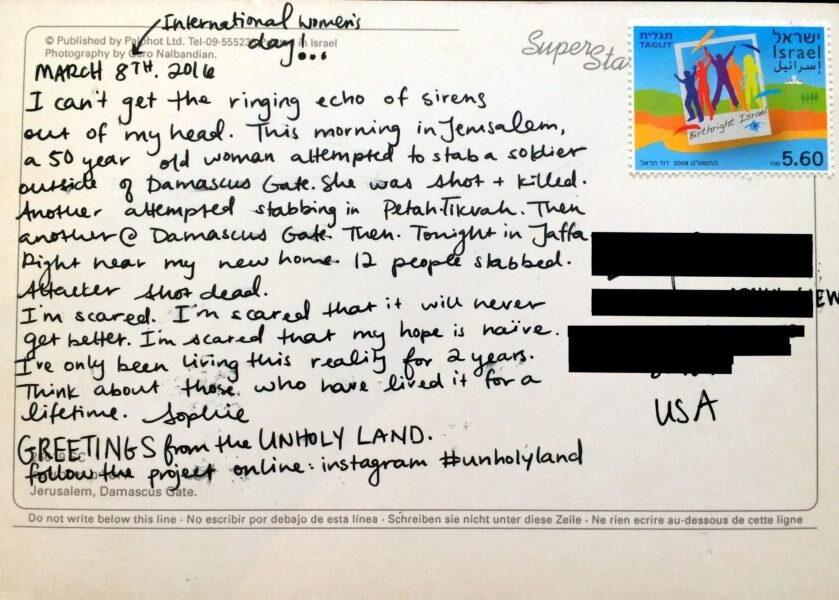 International women's
day!..
© Published by Palphot Ltd. Tel-09-55523 in Israel
Photography by Garo Nalbandian.
MARCH 8TH. 2016
SuperSta
תגלית
TAGLIT
ישראל
Israel
إسرائيل
Birthright Israel
התשס"ט 2008 דוד הראל
5.60 שח
I can't get the ringing echo of sirens
out of my head. This morning in Jerusalem,
a 50 year old woman attempted to stab a soldier
outside of Damascus Gate. She was shot + killed.
Another attempted stabbing in Petah-Tikvah. Then
another @ Damascus Gate. Then. Tonight in Jaffa
Right near my new home. 12 people stabbed.
Attacker shot dead.
I'm scared. I'm scared that it will never
get better. I'm scared that my hope is naïve.
I've only been living this reality for 2 years.
Think about those who have lived it for a
lifetime. Sophie
USA
GREETINGS from the UNHOLY LAND.
follow the project online: instagram #unholyland
Jerusalem, Damascus Gate.
Do not write below this line · No escribir por debajo de esta línea · Schreiben sie nicht unter diese Zeile · Ne rien ecrire au-dessous de cette ligne